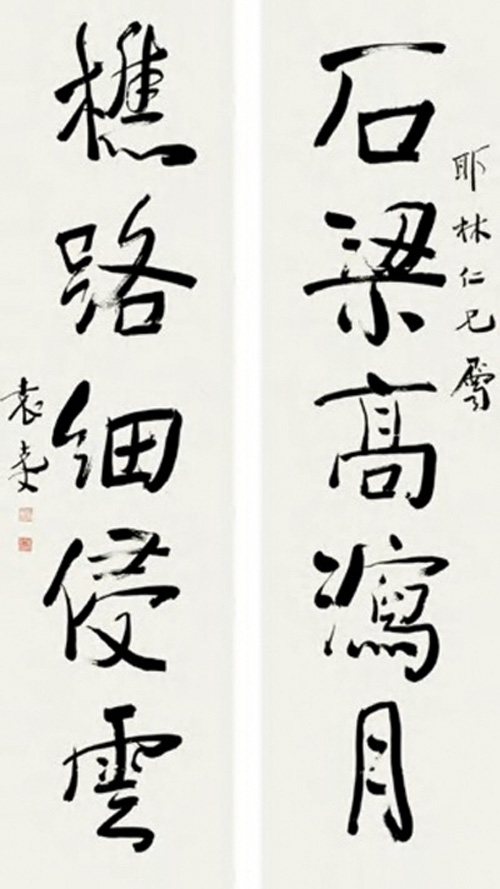 耶林仁兄屬
石梁高瀉月
樵路細侵雲
袁克文